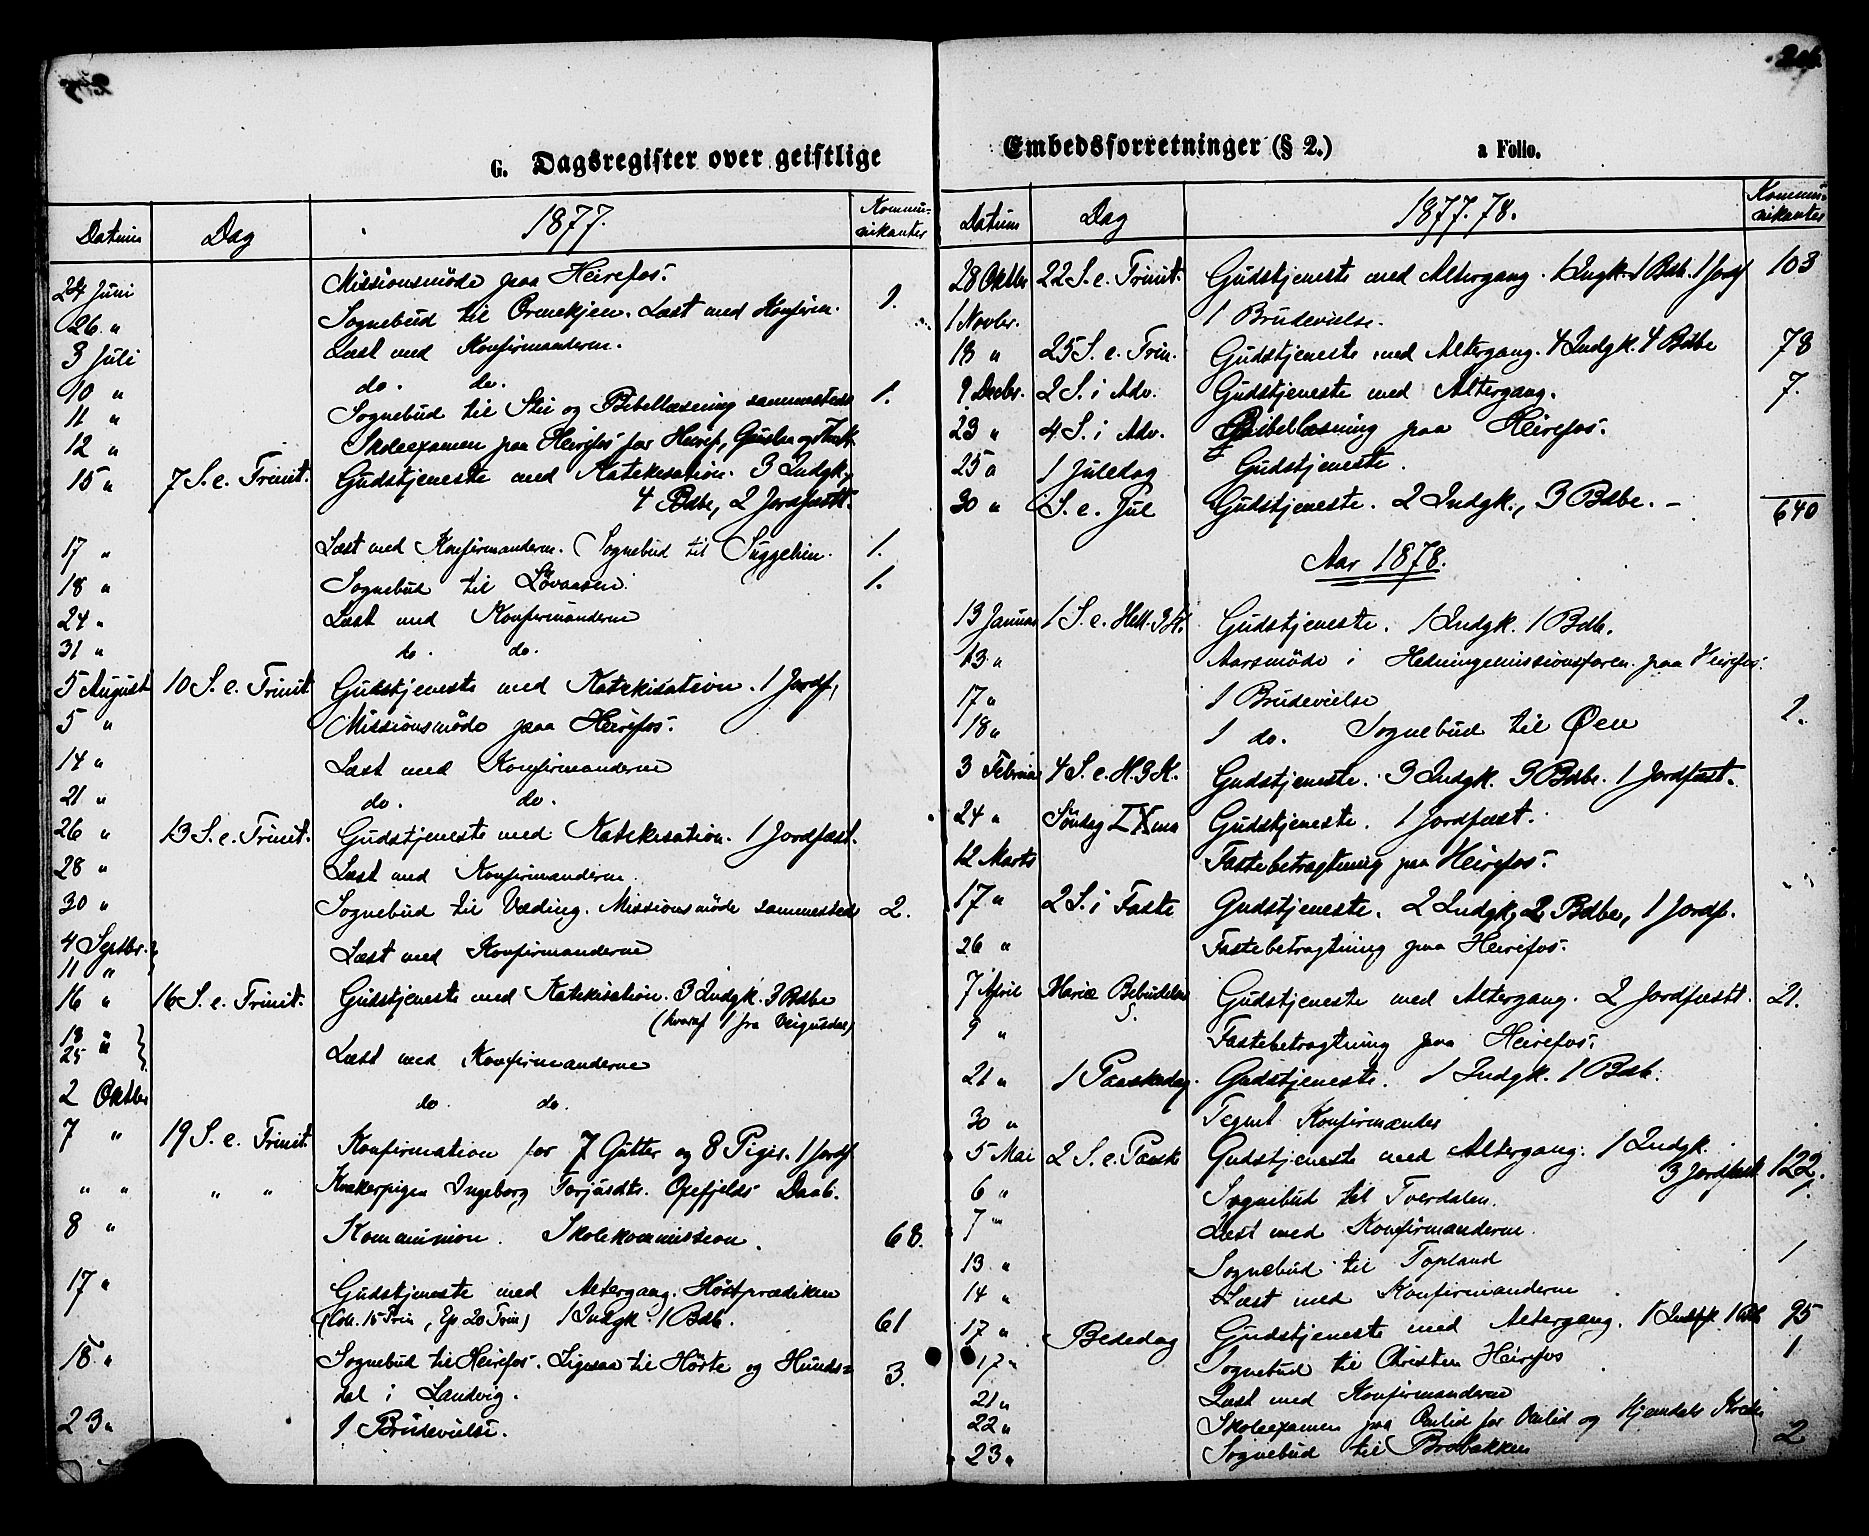 G. Dagsregister over geistlige
Datum Dag 1877. Kommu-
nikanter
24 Juni Missionsmöde paa Heirefos.
26 " Sognebud til Ormekjen. Læst med Konfirm. 1.
3 Juli Læst med Konfirmanderne.
10 " do. do.
11 " Sognebud til Stii og Bibellæsning sammesteds 1.
12 " Skoleexamen paa Heirefos for Heiref,
15 " 7 S. e. Trinit. Gudstjeneste med Katekisation. 3 Indgk,
4 Bdbe, 2 Jordfæst.
17 " Læst med Konfirmanderne. Sognebud til Suggelien. 1.
18 " Sognebud til Lövaasen. 1.
24 " Læst med Konfirmanderne
31 " do. do.
5 August 10 S. e. Trinit Gudstjeneste med Katekisation. 1 Jordf,
5 " Missionsmöde paa Heirefos.
14 " Læst med Konfirmanderne
21 " do. do.
26 " 13 S. e. Trinit. Gudstjeneste med Katekisation. 1 Jordfæst.
28 " Læst med Konfirmanderne.
30 " Sognebud til Væding. Missionsmöde sammesteds 2.
4 Septbr. Læst med Konfirmanderne
11 "
16 " 16 S. e. Trinit. Gudstjeneste med Katekisation. 3 Indgk. 3 Bdbe
(hvoraf 1 fra
18 "
25 " Læst med Konfirmanderne
2 Oktbr do. do.
7 " 19 S. e. Trinit. Konfirmation for 7 Gutter og 8 Piger. 1 Jordf
" " " " Kvækerpigen Ingeborg Torjusdtr. Opefjelds Daab.
8 " Kommunion. Skolekommission. 68.
17 " Gudstjeneste med Altergang. Höstprædiken
(Ev. 15 Trin, Ep 20 Trin) 1 Indgk. 1 Bdb. 61
18 " Sognebud til Heirefos. Ligesaa til Hörte og Hunds-
dal i Landvig. 3.
23 " 1 Brudevielse.
206.
Embedsforretninger (§ 2.) a Folio.
Datum Dag 1877. 78. Kommu-
nikanter
28 Oktbr 22 S. e. Trinit. Gudstjeneste med Altergang. 1 Ingk. 1 Bdb. 1 Jordf 103
1 Novbr. 1 Brudevielse.
18 " 25 S. e. Trin. Gudstjeneste med Altergang. 4 Indgk. 4 Bdbe 78
9 Decbr. 2 S. i Adv. Gudstjeneste med Altergang. 7.
23 " 4 S. i Adv. Bibellæsning paa Heirefos.
25 " 1 Juledag Gudstjeneste.
30 " S. e. Jul Gudstjeneste. 2 Indgk., 3 Bdbe. - 640
Aar 1878.
13 Januar 1 S. e. Hell. 3 K. Gudstjeneste. 1 Indgk. 1 Bdb.
13 " Aarsmöde i Hedningemissionsforen. paa Heirefos.
17 " 1 Brudevielse
18 " 1 do. Sognebud til Øen 1.
3 Februar 4 S. e. H. 3 K. Gudstjeneste. 3 Indgk. 3 Bdbe. 1 Jordfæst.
24 " Söndag LXma Gudstjeneste. 1 Jordfæst.
12 Marts Fastebetragtning paa Heirefos.
17 " 2 S. i Faste Gudstjeneste. 2 Indgk, 2 Bdbe, 1 Jordf.
26 " Fastebetragtning paa Heirefos.
7 April Mariæ Bebudelses Gudstjeneste med Altergang. 2 Jordfæst. 21.
9 " Fastebetragtning paa Heirefos.
21 " 1 Paaskedag. Gudstjeneste. 1 Indgk. 1 Bdb.
30 " Tegnet Konfirmander
5 Mai 2 S. e. Paask Gudstjeneste med Altergang. 1 Indgk.
3 Jordfæst 122.
6 " Sognebud til Tverdalen. 1.
7 " Læst med Konfirmanderne.
13 " Sognebud til Topland 1
14 " Læst med Konfirmanderne.
17 " Bededag Gudstjeneste med Altergang. 1 Indgk 1 Bdb 95
17 " Sognebud til Christen Heirefos 1
21 " Læst med Konfirmanderne
22 " Skoleexamen paa for og Kjendals Kreds
23 " Sognebud til Brobakken 2